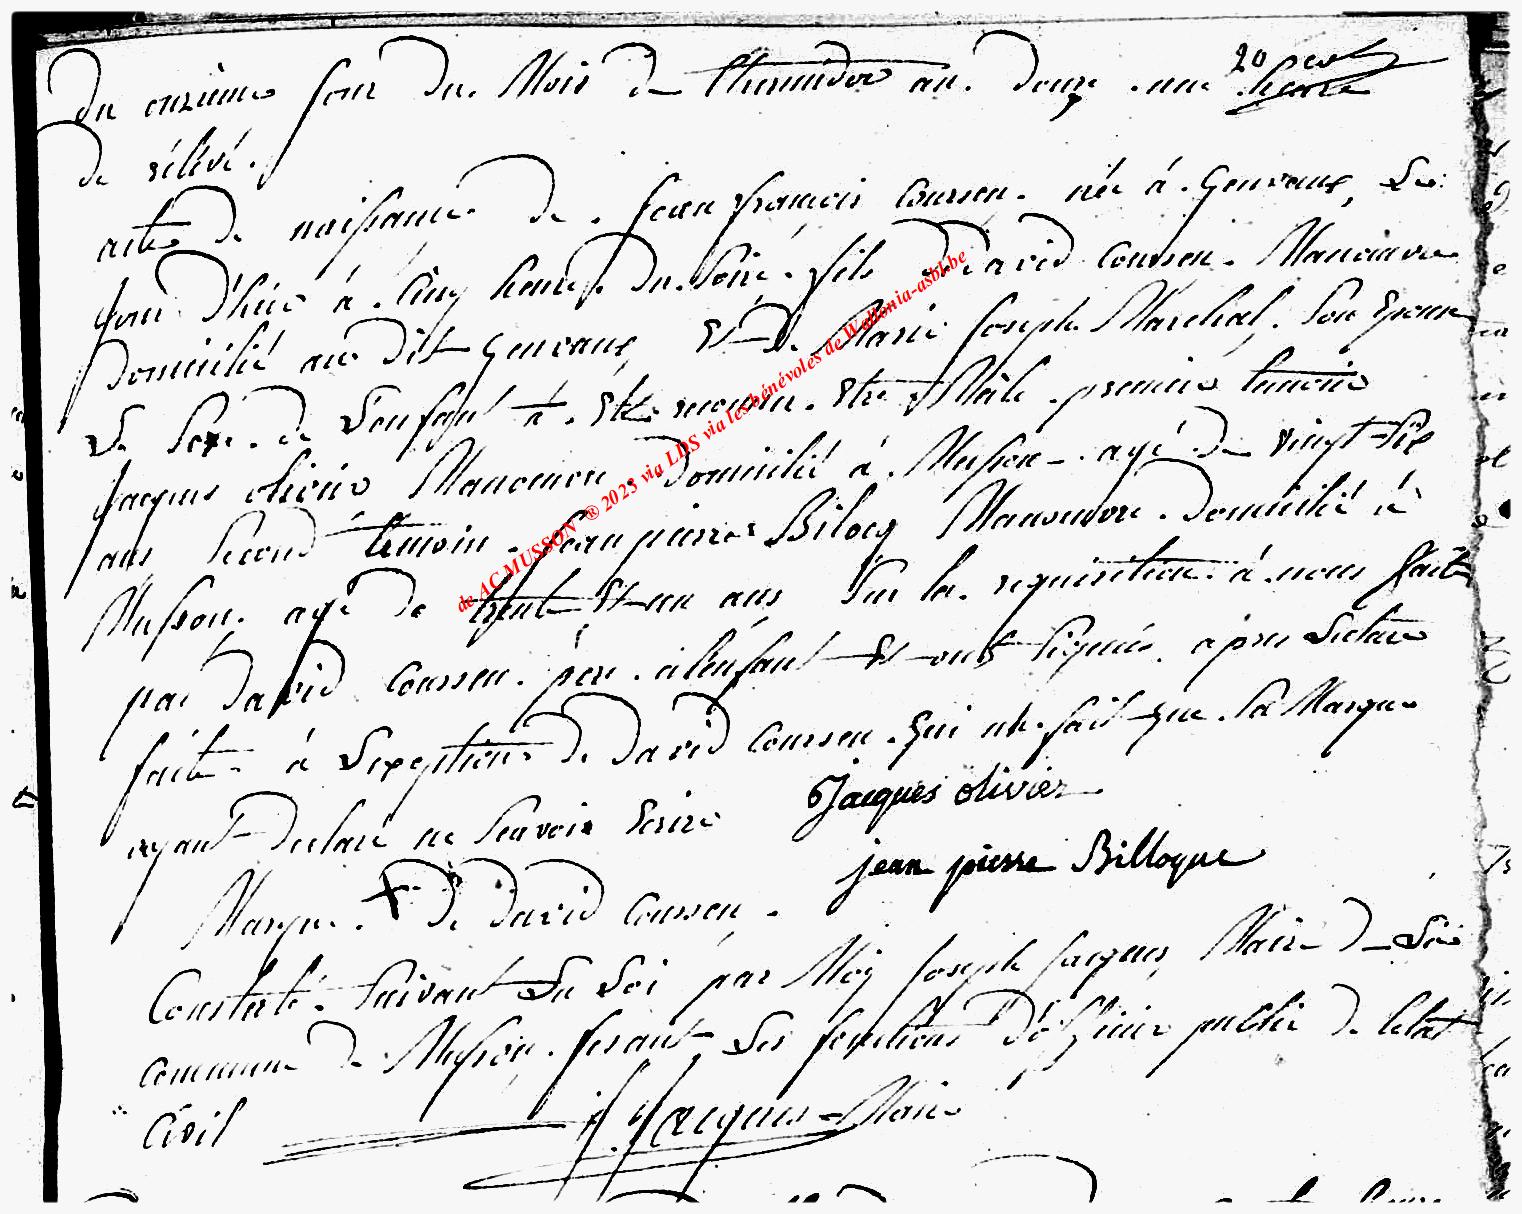 du onzieme jour du Mois de thermidor an douze une heure
de rélévé.
acte de naissance de jean francois Coursen. née á Gennaux, Le
jour D'hiér á Cinq heures du soiré. fils de David Coursen. Manoeuvre
Domicilié au dit Gennaux, Et de Marie joseph Maréchal, Son Epouse
Le Sexe de L'enfant á été reconnu être Mâle. premier temoin
jacques olivier Manouvre Domicilié á Musson. agé de vingt Six
ans Second témoin. jean pierre Bilocq Manouvre. Domicilié á
Musson. agé de trent Et un ans Sur la requisition á nous faite
par David Coursen. pere á l'enfant Et ont Signés. apres Lecture
faite á L'exeption de David Coursen. Qui n'at fait que Sa Marque
ayant Declaré ne Scavoir Ecrire Jacques olivier
jean pierre Billoque
Marque. + de David Coursen.
Constaté. Suivant La Loi par Moy joseph jacques, Maire de La
commune de Musson. fesant Les fonctions d'oficier public de l'état
Civil J. Jacques Maire
de AC MUSSON ® 2023 via LDS via les bénévoles de Wallonia-asbl.be